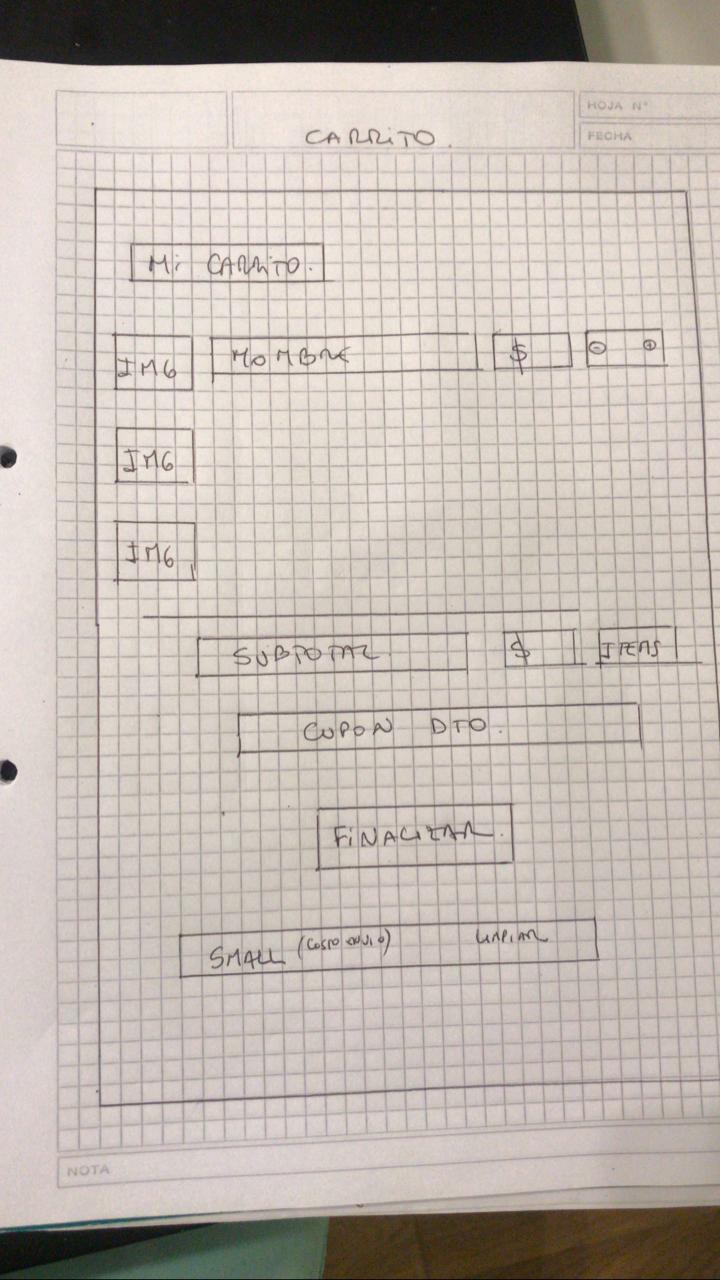 HOJA N°
CARRITO.
FECHA
Mi CARRITO.
IMG NOMBRE $ - +
IMG
IMG
SUBTOTAL $ ITEMS
CUPON DTO.
FiNALIZAR.
SMALL (COSTO ENVIO) LIMPIAR
NOTA